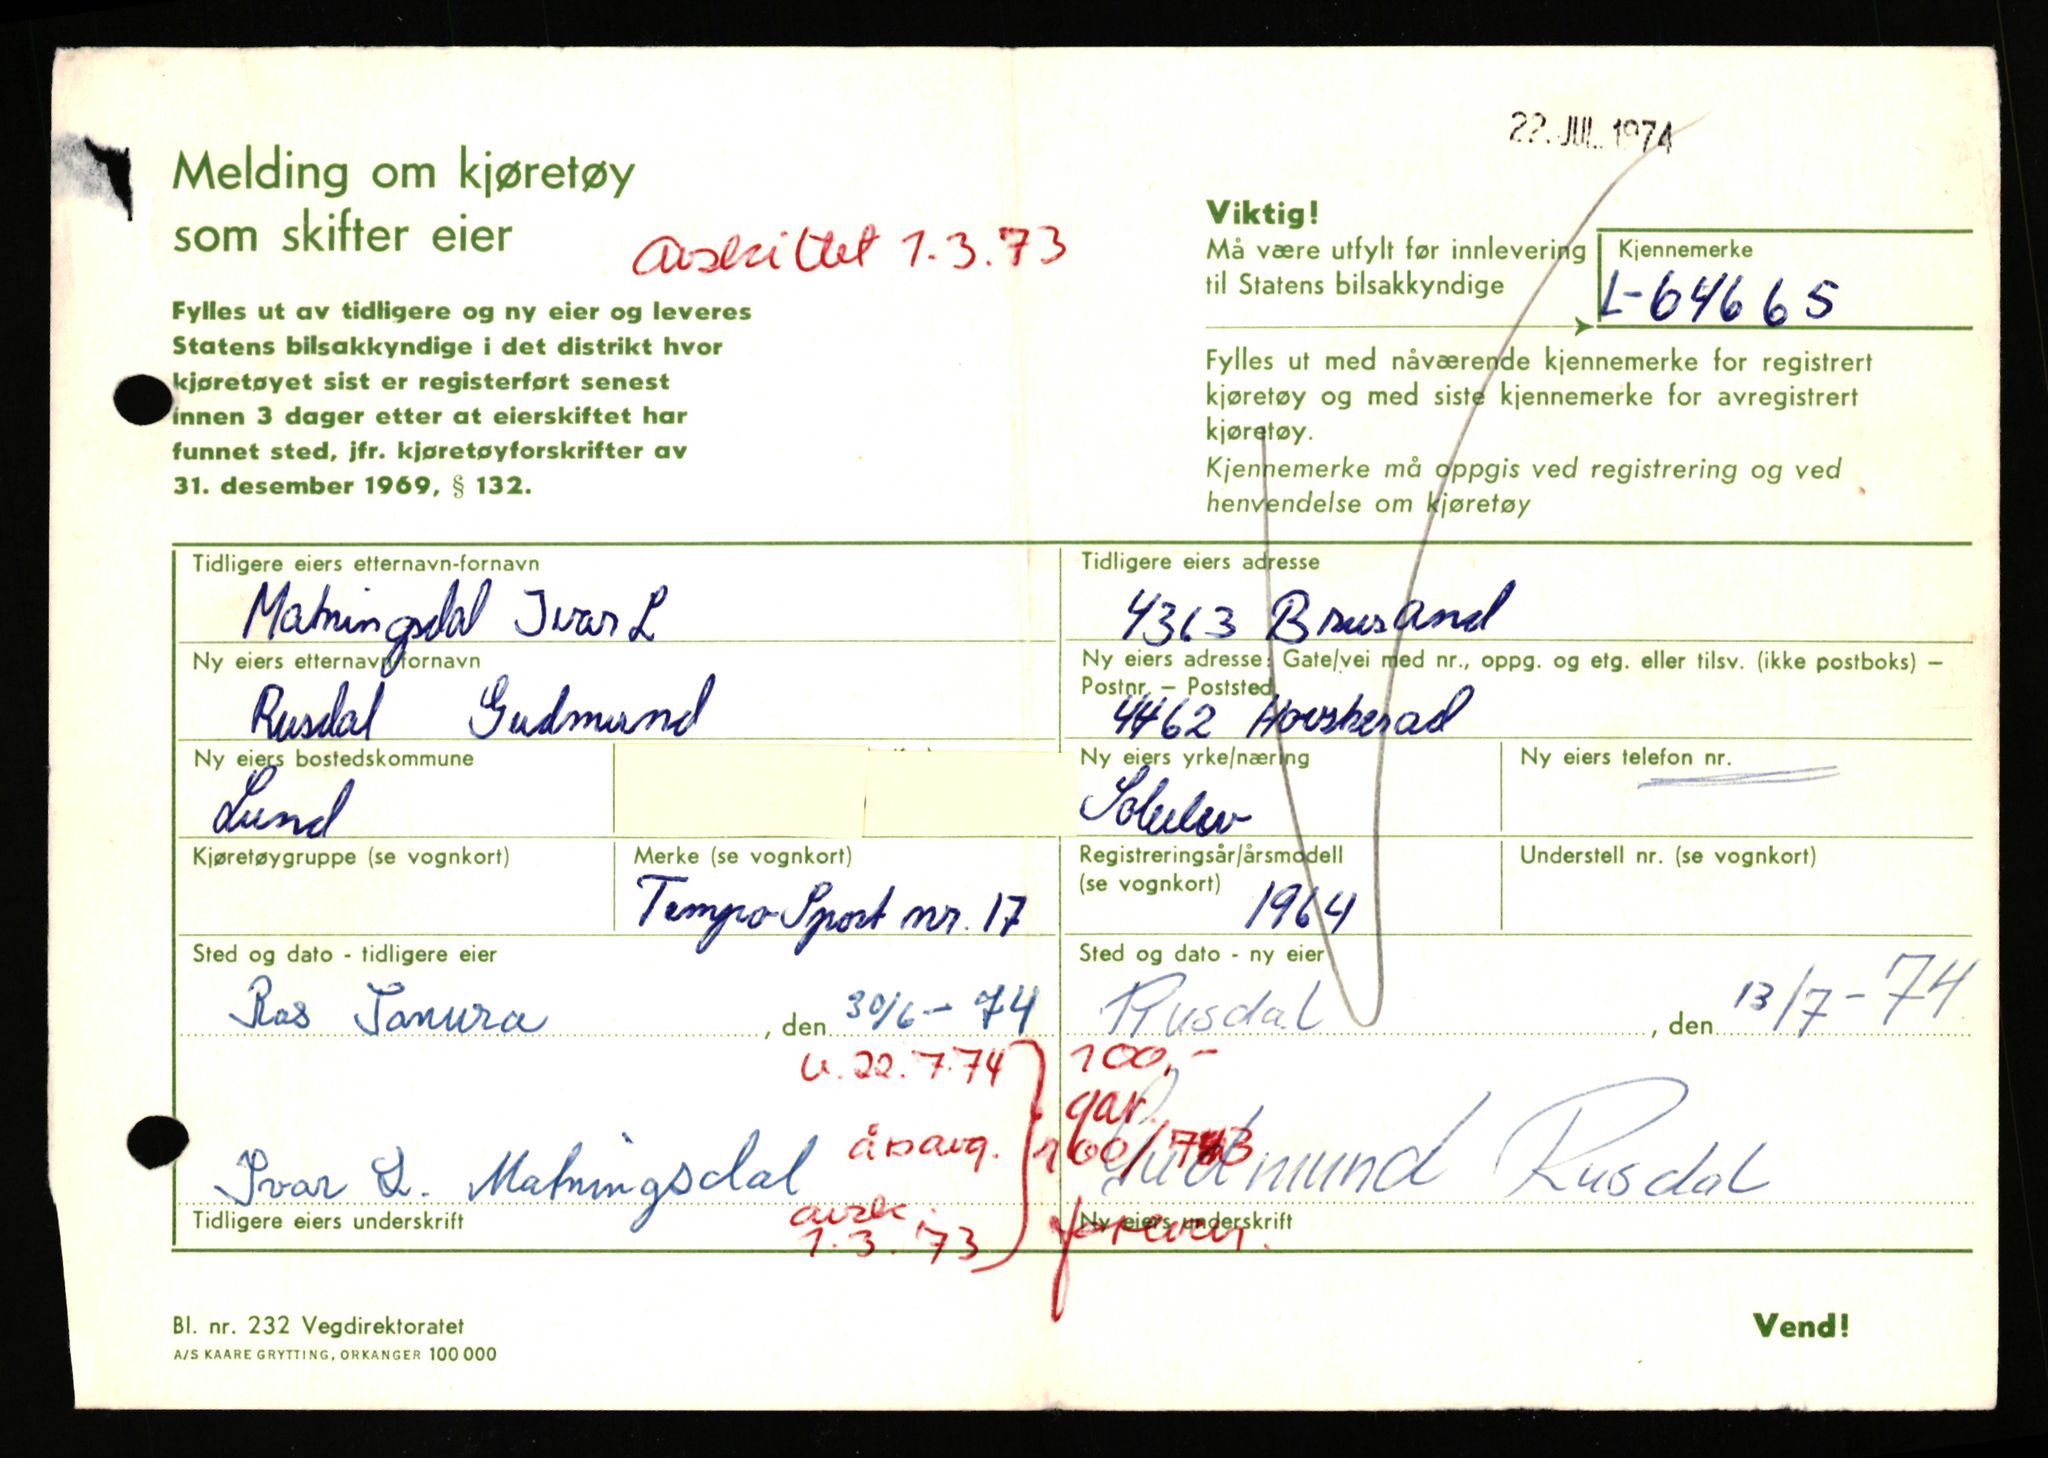 22. JUL. 1974
Melding om kjøretøy
som skifter eier
Avskiltet 1.3.73
Fylles ut av tidligere og ny eier og leveres
Statens bilsakkyndige i det distrikt hvor
kjøretøyet sist er registerført senest
innen 3 dager etter at eierskiftet har
funnet sted, jfr. kjøretøyforskrifter av
31. desember 1969, § 132.
Viktig!
Må være utfylt før innlevering
til Statens bilsakkyndige
Kjennemerke
L-64665
Fylles ut med nåværende kjennemerke for registrert
kjøretøy og med siste kjennemerke for avregistrert
kjøretøy.
Kjennemerke må oppgis ved registrering og ved
henvendelse om kjøretøy
Tidligere eiers etternavn-fornavn
Matningsdal Ivar L
Tidligere eiers adresse
4363 Brusand
Ny eiers etternavn-fornavn
Rusdal Gudmund
Ny eiers adresse: Gate/vei med nr., oppg. og etg. eller tilsv. (ikke postboks) –
Postnr. – Poststed
4462 Hovsherad
Ny eiers bostedskommune
Lund
Ny eiers yrke/næring
Ny eiers telefon nr.
Kjøretøygruppe (se vognkort)
Merke (se vognkort)
Tempo Sport nr. 17
Registreringsår/årsmodell
(se vognkort)
1964
Understell nr. (se vognkort)
Sted og dato - tidligere eier
Ras Tanura, den 30/6 - 74
Sted og dato - ny eier
Rusdal, den 13/7 - 74
22.7.74
100,-
gar.
årsavg. 160/73
Ivar L. Matningsdal
Gudmund Rusdal
Tidligere eiers underskrift
avsk.
1.3.73
Ny eiers underskrift
Bl. nr. 232 Vegdirektoratet
A/S KAARE GRYTTING, ORKANGER 100 000
Vend!